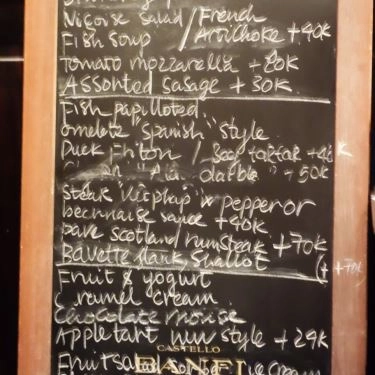 Niçoise salad / French
Fish soup / Artichoke + 40k
Tomato mozzarella + 20k
Assorted sasage + 30k
Fish papilloted
omelete "Spanish" style
Duck Friton / Beef tartar + 48k
"Ala diable" + 50k
Steak "Ketchap" x pepperor
bearnaise sauce + 40k
Pave Scotland / rumsteak + 70k
Bavette flank, shallot (+ 70k
Fruit & yogurt
Caramel cream
Chocolate mousse
Apple tart new style + 29k
CASTELLO
BANFI
Fruit salad sorbet / ice cream